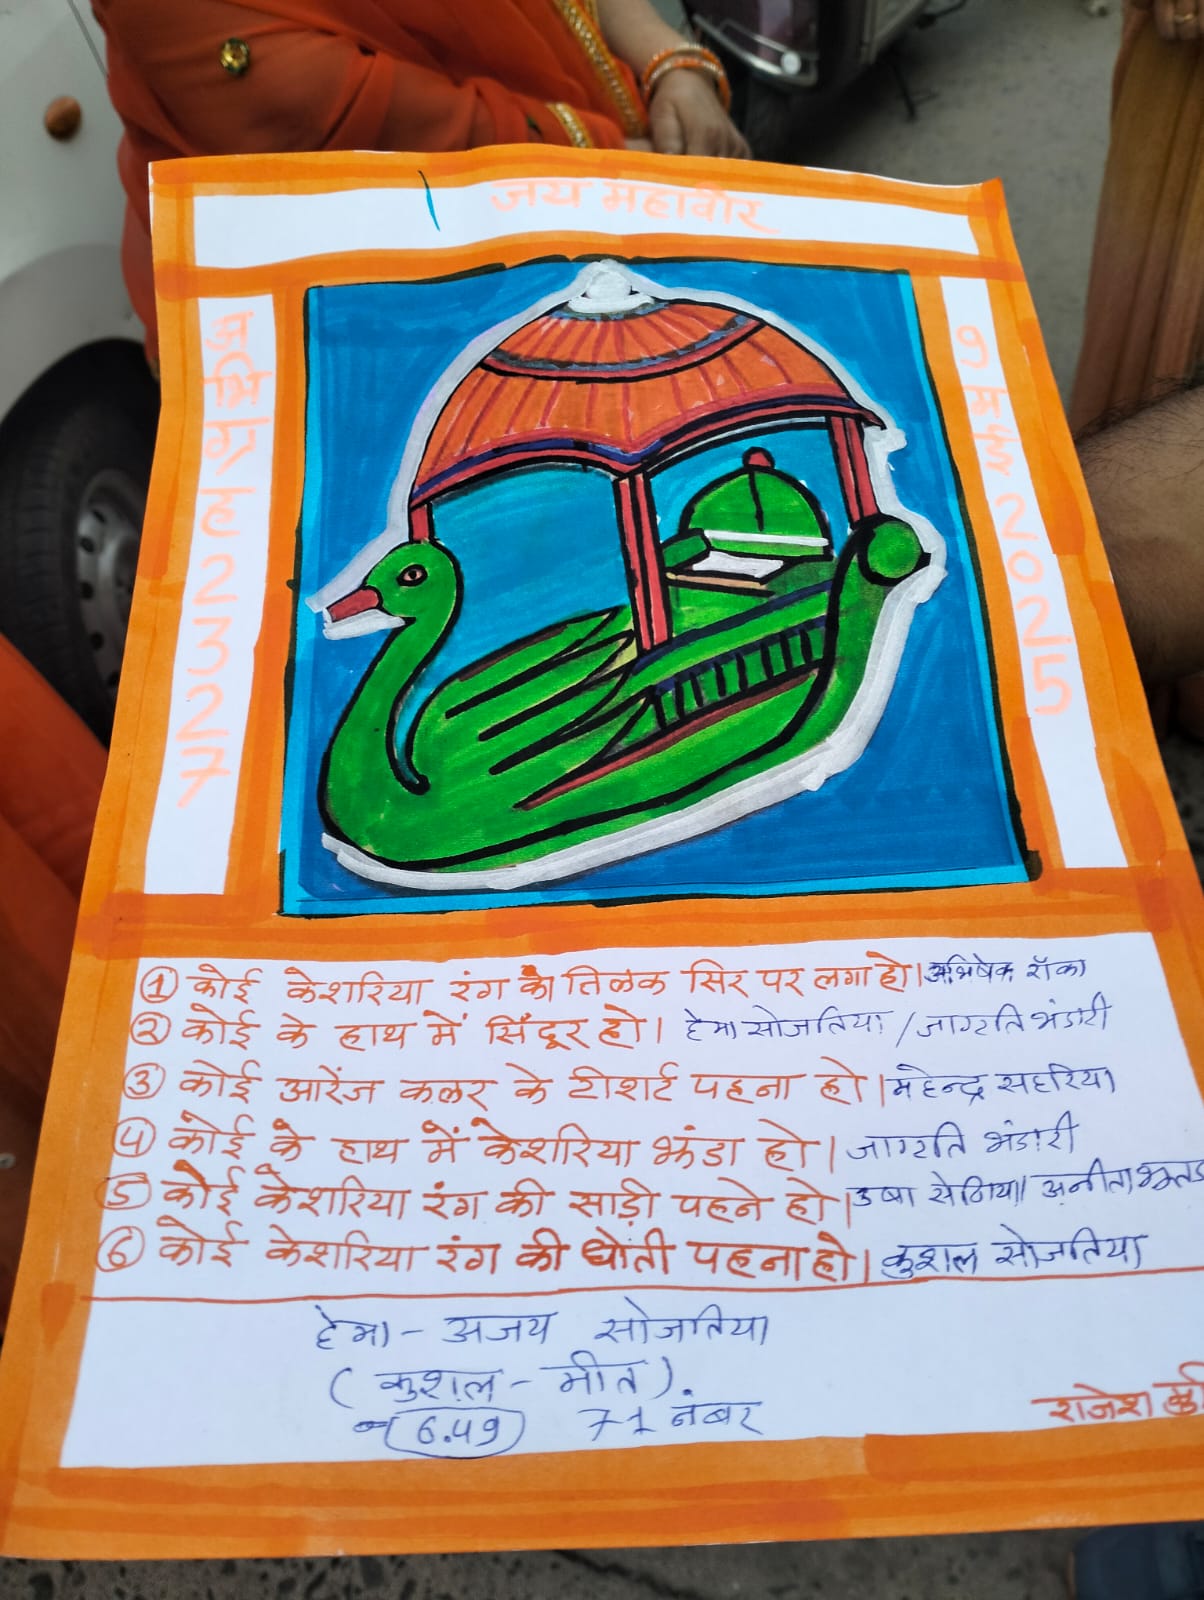 जय महावीर
अभिग्रह 22327
9 मई 2025
① कोई केशरिया रंग का तिलक सिर पर लगा हो। अभिषेक रॉका
② कोई के हाथ में सिंदूर हो। हेमा सोजतिया / जाग्रति भंडारी
③ कोई आरेंज कलर के टीशर्ट पहना हो। महेन्द्र सहरिया
④ कोई के हाथ में केशरिया झंडा हो। जाग्रति भंडारी
⑤ कोई केशरिया रंग की साड़ी पहने हो। उषा सेठिया / अनीता
⑥ कोई केशरिया रंग की धोती पहना हो। कुशल सोजतिया
हेमा - अजय सोजतिया
(कुशल - मीत)
6.49 71 नंबर
राजेश